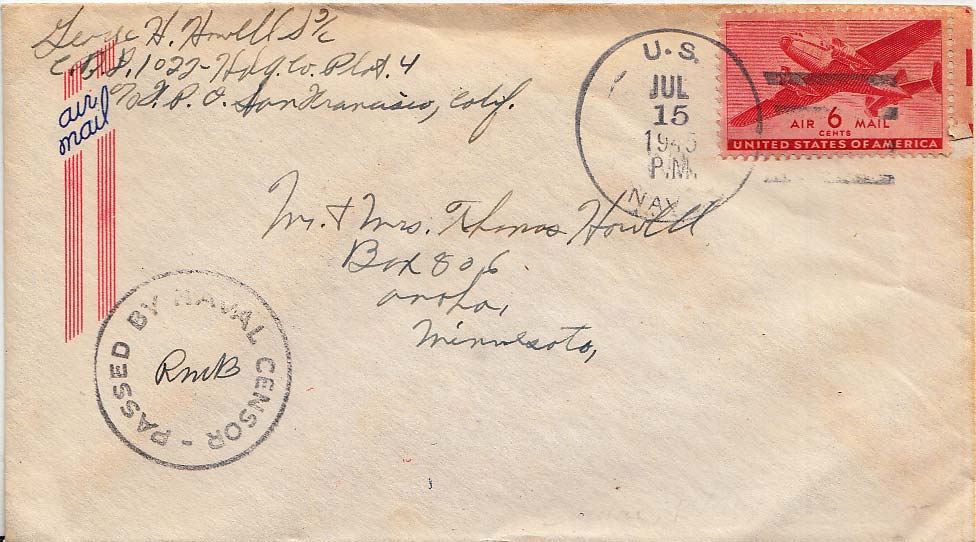 George H. Howell S 2/c
C.B.D. 1022 - Hdq. Co. Plat. 4
% F.P.O. San Francisco, Calif.
air
mail
U.S.
JUL
15
1945
P.M.
NAVY
AIR 6 MAIL
CENTS
UNITED STATES OF AMERICA
Mr. & Mrs. Thomas Howell
Box 806
Anoka,
Minnesota,
PASSED BY NAVAL CENSOR -
RMB